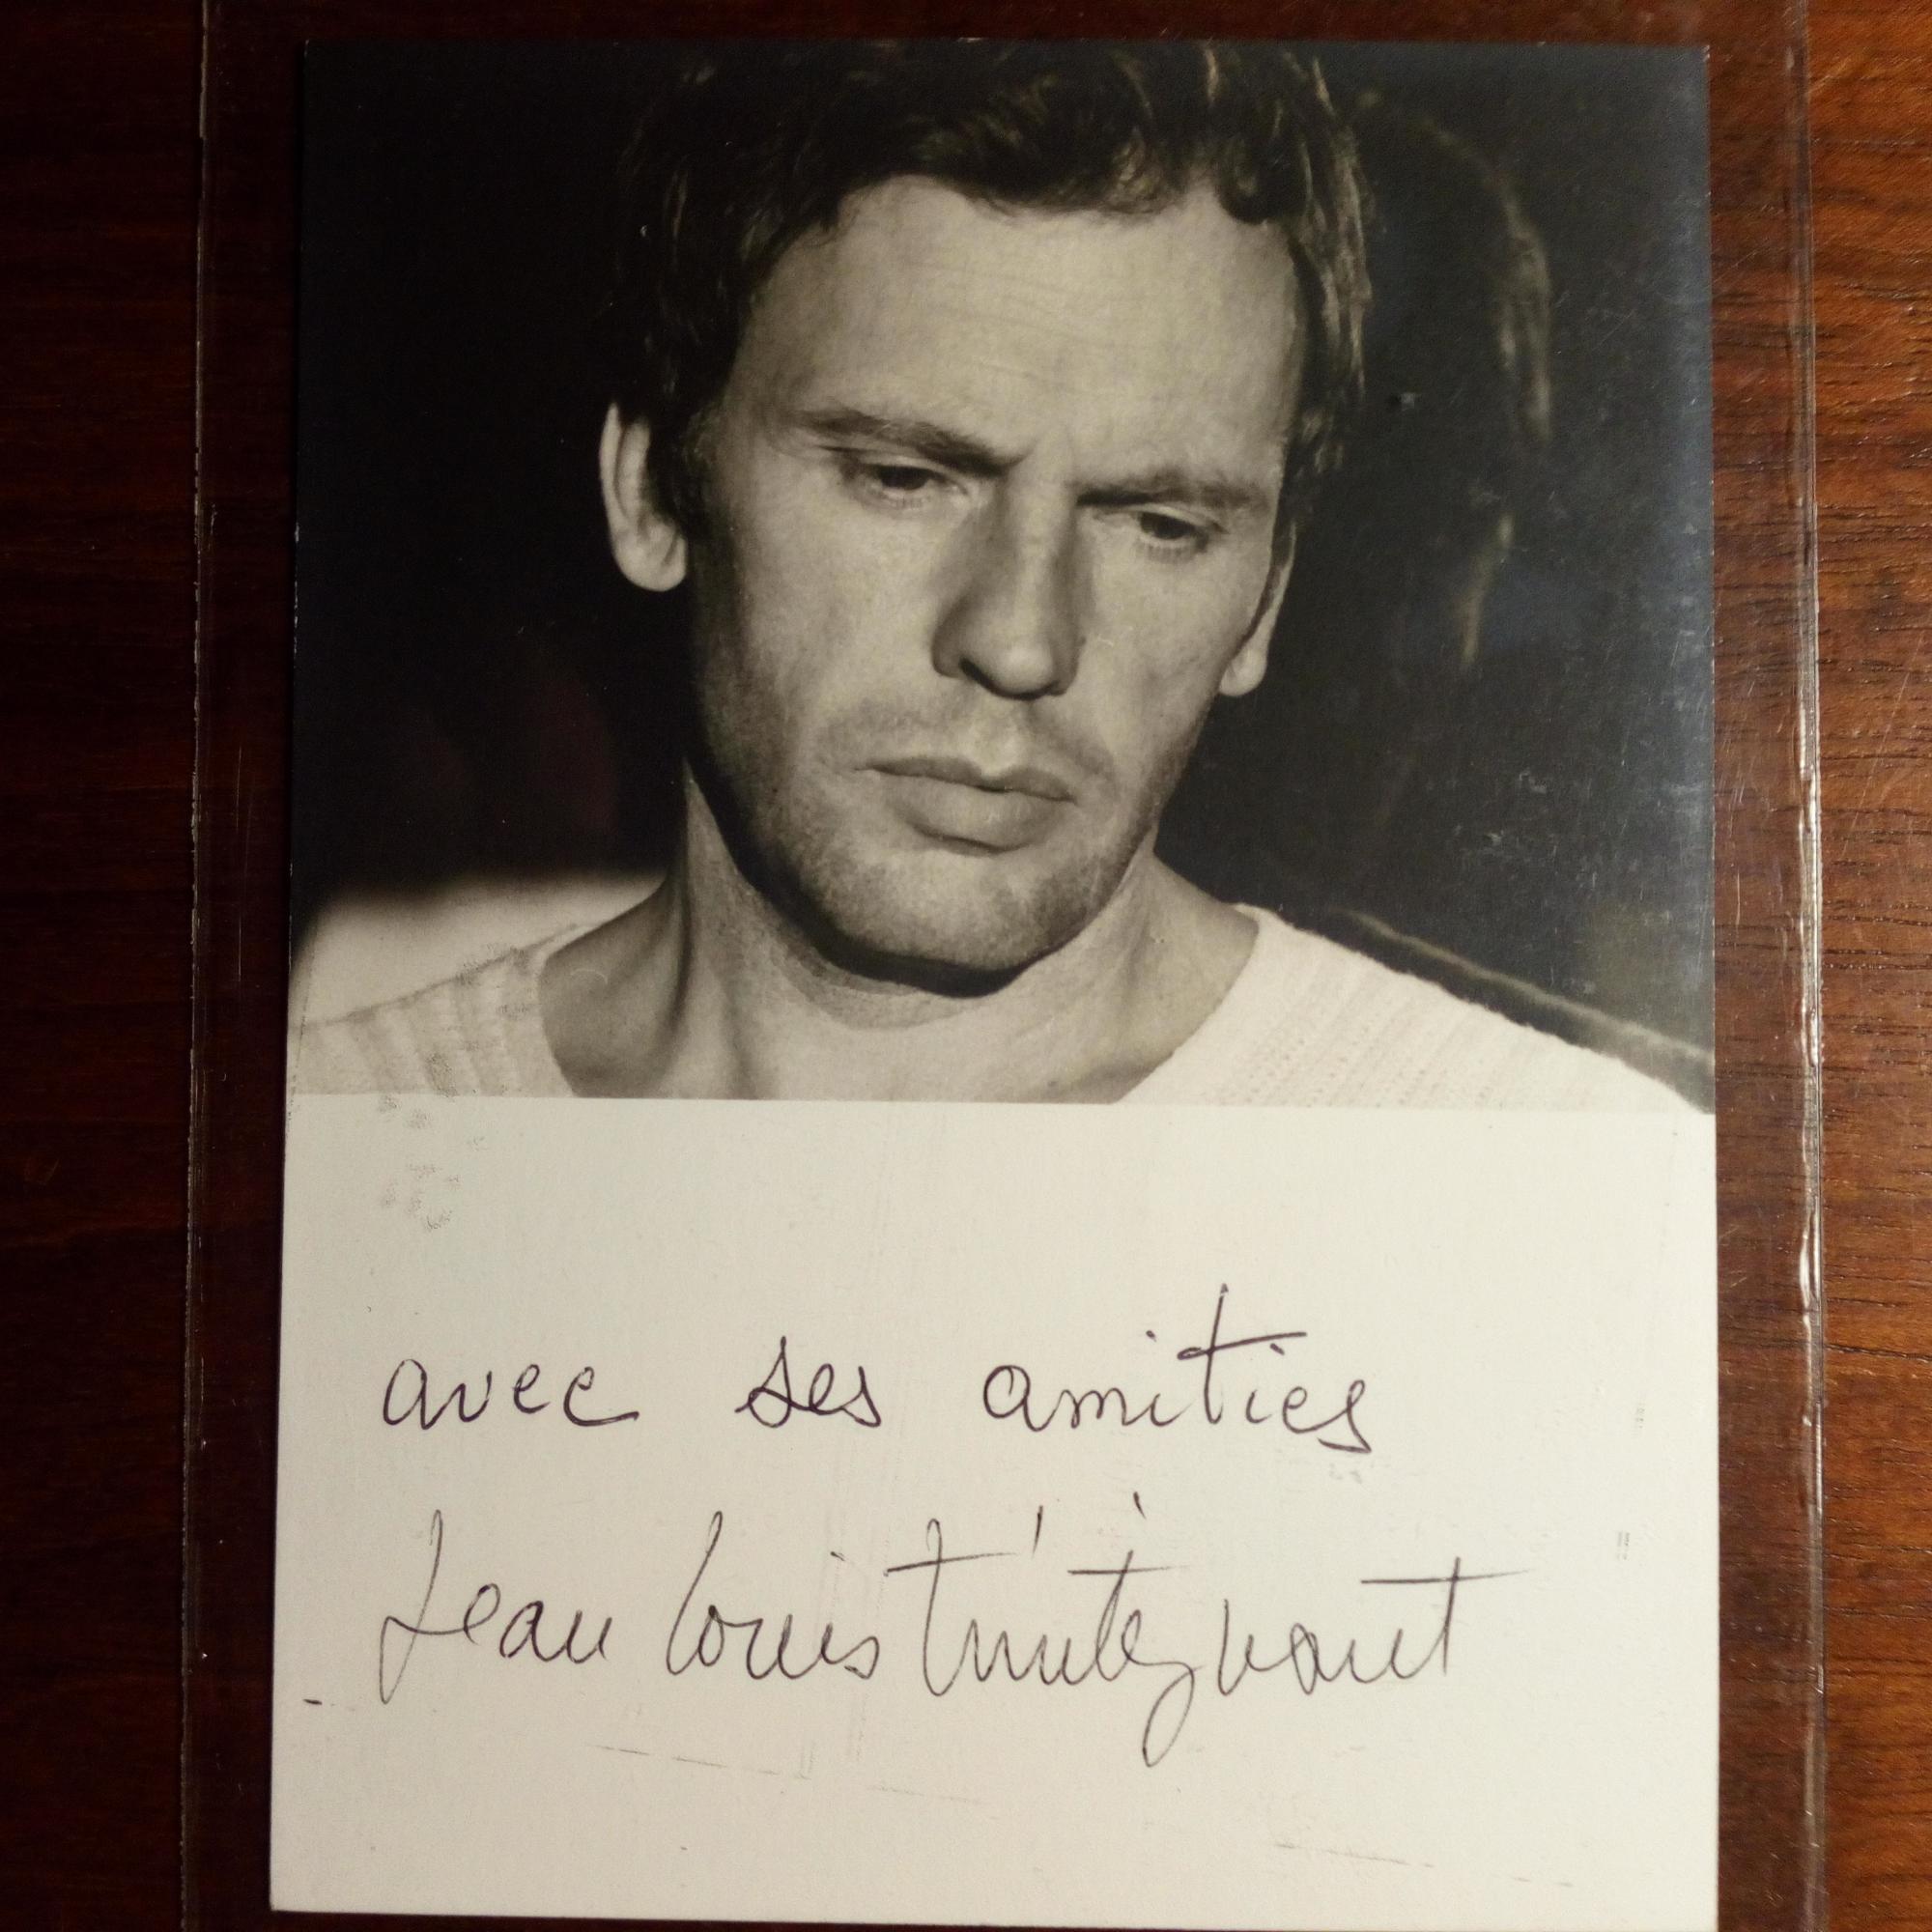 avec ses amitiés
Jean Louis Trintignant